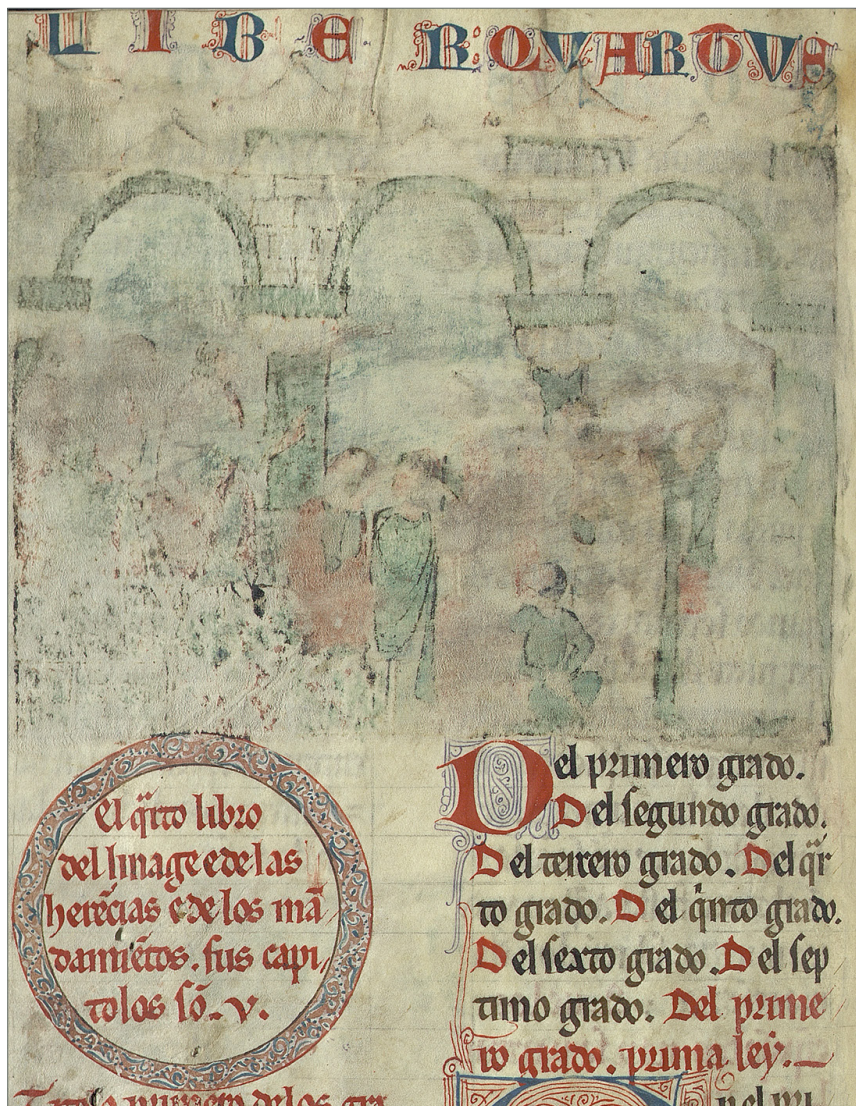 LIBER:QVARTVS
El q̃rto libro
del linage e de las
herẽcias e de los mã
damiẽtos. sus capi
tolos sõ. v.
Del primero grado.
Del segundo grado.
Del tercero grado. Del q̃r
to grado. Del q̃nto grado.
Del sexto grado. Del sep
timo grado. Del prime
ro grado. prima ley.